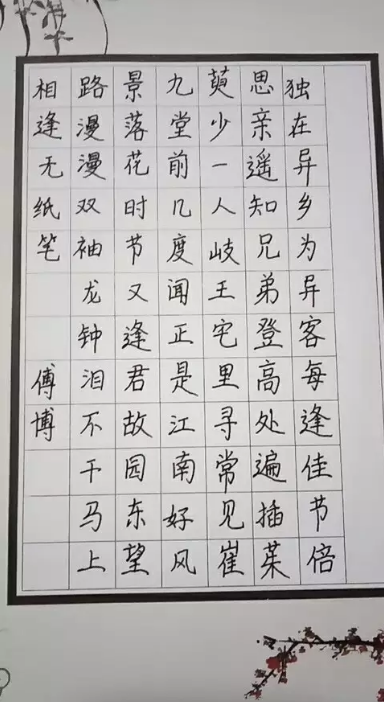 独在异乡为异客每逢佳节倍
思亲遥知兄弟登高处遍插茱
萸少一人岐王宅里寻常见崔
九堂前几度闻正是江南好风
景落花时节又逢君故园东望
路漫漫双袖龙钟泪不干马上
相逢无纸笔 傅博